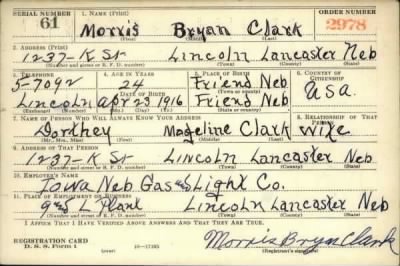 SERIAL NUMBER 1. NAME (Print) ORDER NUMBER
61 Morris Bryan Clark 2978
2. ADDRESS (Print)
1237-K St Lincoln Lancaster Neb
(Number and street or R. F. D. number) (Town) (County) (State)
3. TELEPHONE 4. AGE IN YEARS 5. PLACE OF BIRTH 6. COUNTRY OF CITIZENSHIP
5-7092 24 Friend Neb
DATE OF BIRTH (Town or county)
Lincoln Apr 23 1916 Friend Neb U.S.a.
(Exchange) (Number) (Mo.) (Day) (Yr.) (State or country)
7. NAME OF PERSON WHO WILL ALWAYS KNOW YOUR ADDRESS 8. RELATIONSHIP OF THAT PERSON
Dorthey Mageline Clark wife
(Mr., Mrs., Miss) (First) (Middle) (Last)
9. ADDRESS OF THAT PERSON
1237-K St Lincoln Lancaster Neb
(Number and street or R. F. D. number) (Town) (County) (State)
10. EMPLOYER'S NAME
Iowa Neb Gas and Light Co.
11. PLACE OF EMPLOYMENT OR BUSINESS
9 and L Plant Lincoln Lancaster Neb
(Number and street or R. F. D. number) (Town) (County) (State)
I AFFIRM THAT I HAVE VERIFIED ABOVE ANSWERS AND THAT THEY ARE TRUE.
REGISTRATION CARD
D. S. S. Form 1 16-17105 Morris Bryan Clark
(Registrant's signature)